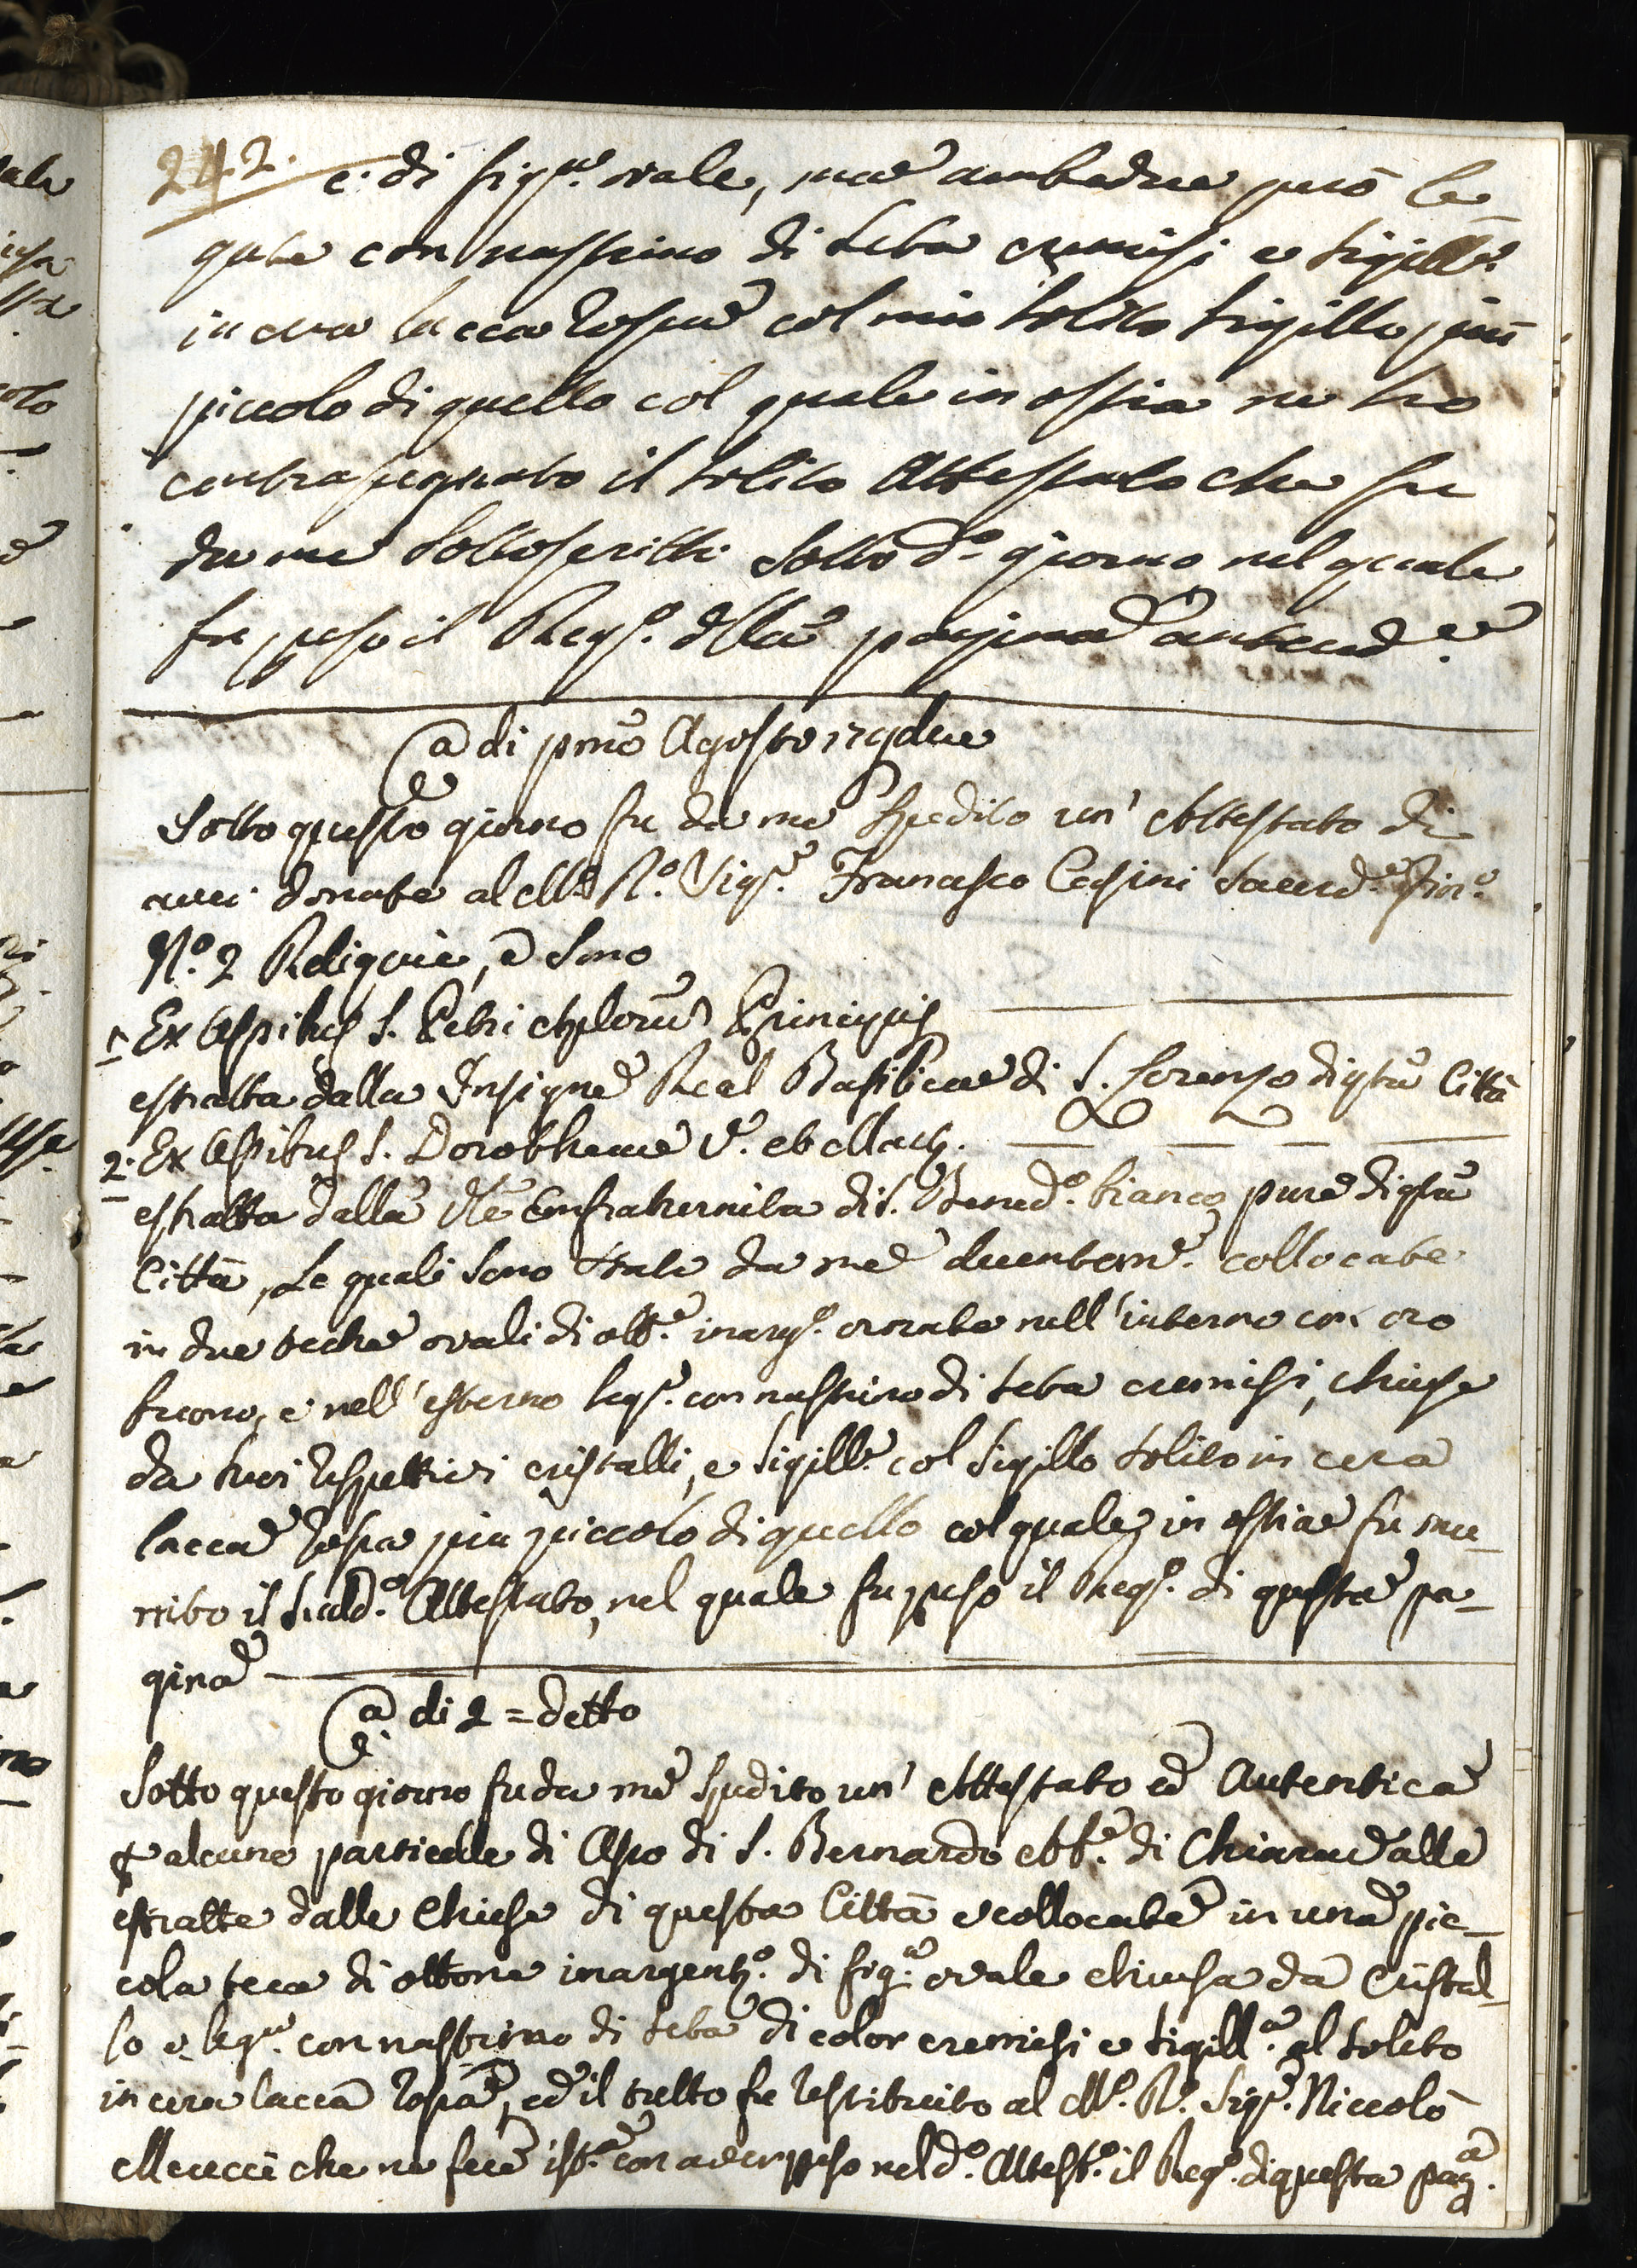 242.
e: di fig.ra ovale, ma ambedue però le
gate con nastrino di seta cremisi e sigill.e
in cera lacca rossa col mio solito sigillo più
piccolo di quello col quale in ostia ne ho
contrasegnato il solito Attestato che fu
da me sottoscritto sotto d.o giorno nel quale
fu posto il Reg.o della pagina anteced.e
A di pmo Agosto 179due
Sotto questo giorno fu da me spedito un' Attestato di
aver donate al M.o R.o Sig.re Francesco Cesini Sacerd.e Fior.o
N.o 2 Reliquie, e sono
1. Ex Ossibus S. Petri Aplorum Principis
estratta dalla Insigne Real Basilica di S. Lorenzo di qta Città
2. Ex Ossibus S. Dorotheae V. et Mart.
estratta dalla Ven. Confraternita di S. Bened.o bianco pure di qta
Città, Le quali sono state da me decentem.e collocate
in due teche ovali di ott.e inarg.o ornate nell' interno con oro
furono, e nell' esterno leg.e con nastrino di seta cremisi, chiuse
da suoi respettivi cristalli, e sigill.e col sigillo solito in cera
lacca rossa più piccolo di quello col quale in ostia fu mu-
nito il sudd.o Attestato, nel quale fu posto il Reg.o di questa pa-
gina
A di 2 = detto
Sotto questo giorno fu da me spedito un' Attestato ed Autentica
p alcune particelle di Osso di S. Bernardo Ab.e di Chiaravalle
estratte dalle Chiese di questa Città e collocate in una pic-
cola teca di ottone inargent.o di fig.ra ovale chiusa da Cristal-
lo e leg.ta con nastrino di seta di color cremisi e sigill.a al solito
in cera lacca rossa, ed il tutto fu restituito al M.o R.o Sig.re Niccolò
Meucci che ne fece ist.a con aver posto nel d.o Attest.o il Reg.o di questa pag.a